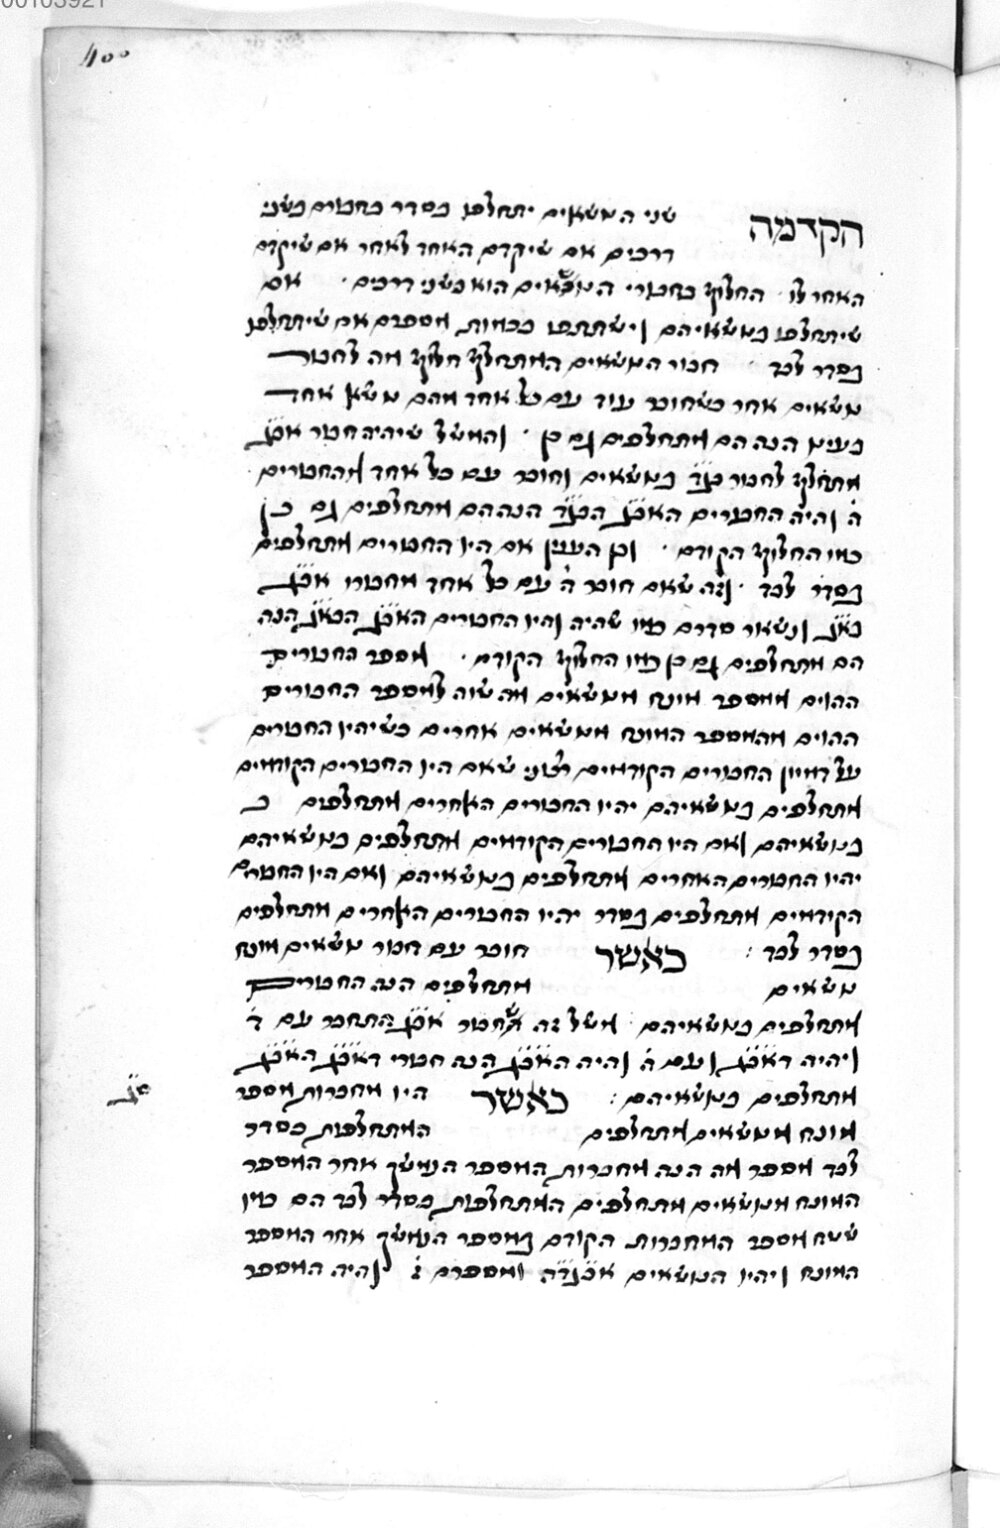 400
הקדמה שני הנושאים יתחלפו בסדר בחבורם בשני
דרכים אם שיקדם האחד לאחר אם שיקדם
האחר לו · החלוף בחבורי הנושאים הוא בשני דרכים · אם
שיתחלפו בנושאיהם וישתתפו בכמות מספרם אם שיתחלפו
בסדר לבד · חבור הנושאים המתחלף חלוף מה לחבור
נושאים אחר כשחובר עוד עם כל אחד מהם נושא אחד
בעינו הנה הם מתחלפים גם כן · והמשל שיהיה חבור אבג
מתחלף לחבור בגד בנושאים וחובר עם כל אחד מהחבורים
ה והיה החבורים האבג הבגד הנה הם מתחלפים גם כן
כמו החלוף הקודם · וכן הענין אם היו החבורים מתחלפים
בסדר לבד · וזה שאם חובר ה עם כל אחד מחבורי אבג
באג ונשאר סדרם כמו שהיה והיו החבורים האבג הבאג הנה
הם מתחלפים גם כן כמו החלוף הקודם · מספר החבורים
ההוים ממספר מונח מנושאים מה שוה למספר החבורים
ההוים מהמספר המונח מנושאים אחרים כשיהיו החבורים
על דמיון החבורים הקודמים רצוני שאם היו החבורים הקודמים
מתחלפים בנושאיהם יהיו החבורים האחרים מתחלפים ב
בנושאיהם ואם היו החבורים הקודמים מתחלפים בנושאיהם
יהיו החבורים האחרים מתחלפים בנושאיהם ואם היו החבורים
הקודמים מתחלפים בסדר יהיו החבורים האחרים מתחלפים
בסדר לבד : כאשר חובר עם חבור נושאים מונח
נושאים מתחלפים הנה החבורים
מתחלפים בנושאיהם · משל זה שחבור אבג התחבר עם ד
ויהיה דאבג ועם ה והיה האבג הנה חבורי דאבג האבג
מתחלפים בנושאיהם : כאשר היו מחברות מספר
מונח מנושאים מתחלפים המתחלפות בסדר
לבד מספר מה הנה מחברות המספר הנמשך אחר המספר
המונח מנושאים מתחלפים המתחלפות בסדר לבד הם כמו
שטח מספר המחברות הקודם במספר הנמשך אחר המספר
המונח ויהיו הנושאים אבגדה ומספרם ז והיה המספר